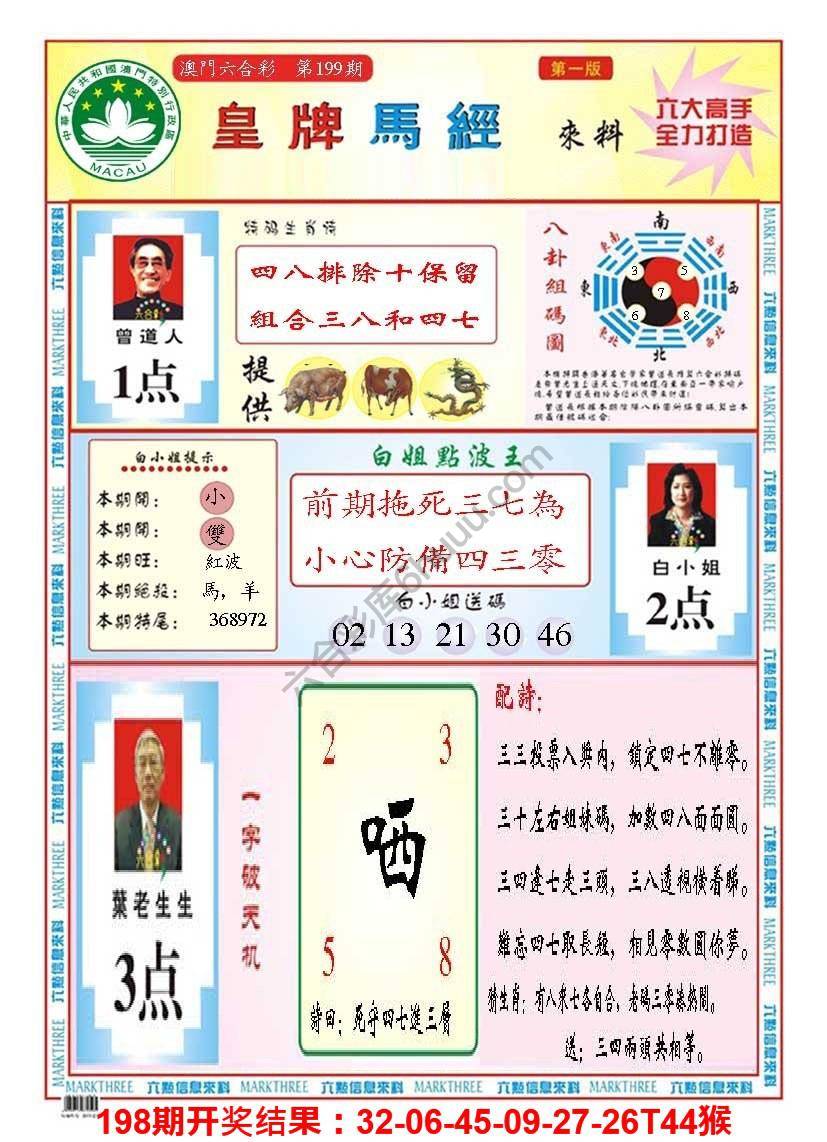 澳門六合彩 第199期
第一版
中華人民共和國澳門特別行政區
MACAU
皇牌馬經
來料
六大高手
全力打造
曾道人
1点
特码生肖诗
四八排除十保留
組合三八和四七
提供
八卦組碼圖
南
東南
西南
東
西
東北
西北
北
3
5
7
6
8
白小姐提示
本期開： 小
本期開： 雙
本期旺： 紅波
本期絕殺： 馬，羊
本期特尾： 368972
白姐點波王
前期拖死三七為
小心防備四三零
白小姐送碼
02 13 21 30 46
白小姐
2点
葉老生生
3点
一字破天机
2 3
哂
5 8
詩曰：死守四七進三層
配詩：
三三投票入獎内，鎖定四七不離零。
三十左右姐妹碼，加數四八面面圓。
三四逢七走三頭，三八透視橫着睇。
難忘四七取長短，相見零數圓你夢。
猜生肖：有八來七各自合，老碼三零湊熱鬧。
送：三四兩頭共相等。
MARKTHREE 六點信息來料 MARKTHREE 六點信息來料 MARKTHREE 六點信息來料 MARKTHREE 六點信息來料
六合彩库6huuu.com
198期开奖结果：32-06-45-09-27-26T44猴